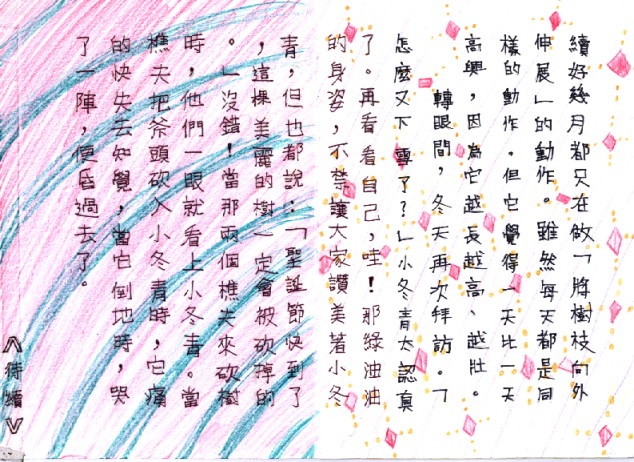 續好幾月都只在做「將樹枝向外
伸展」的動作。雖然每天都是同
樣的動作。但它覺得一天比一天
高興,因為它越長越高、越壯。
轉眼間,冬天再次拜訪。「
怎麼又下雪了?」小冬青太認真
了。再看看自己,哇!那綠油油
的身姿,不禁讓大家讚美著小冬
青,但也都說:「聖誕節快到了
,這棵美麗的樹一定會被砍掉的
。」沒錯!當那兩個樵夫來砍樹
時,他們一眼就看上小冬青。當
樵夫把斧頭砍入小冬青時,它痛
的快失去知覺,當它倒地時,哭
了一陣,便昏過去了。
《待續》